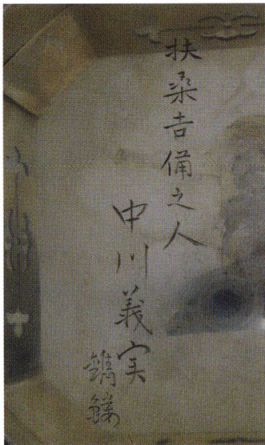 扶桑吉備之人
中川義実
鐫鏤